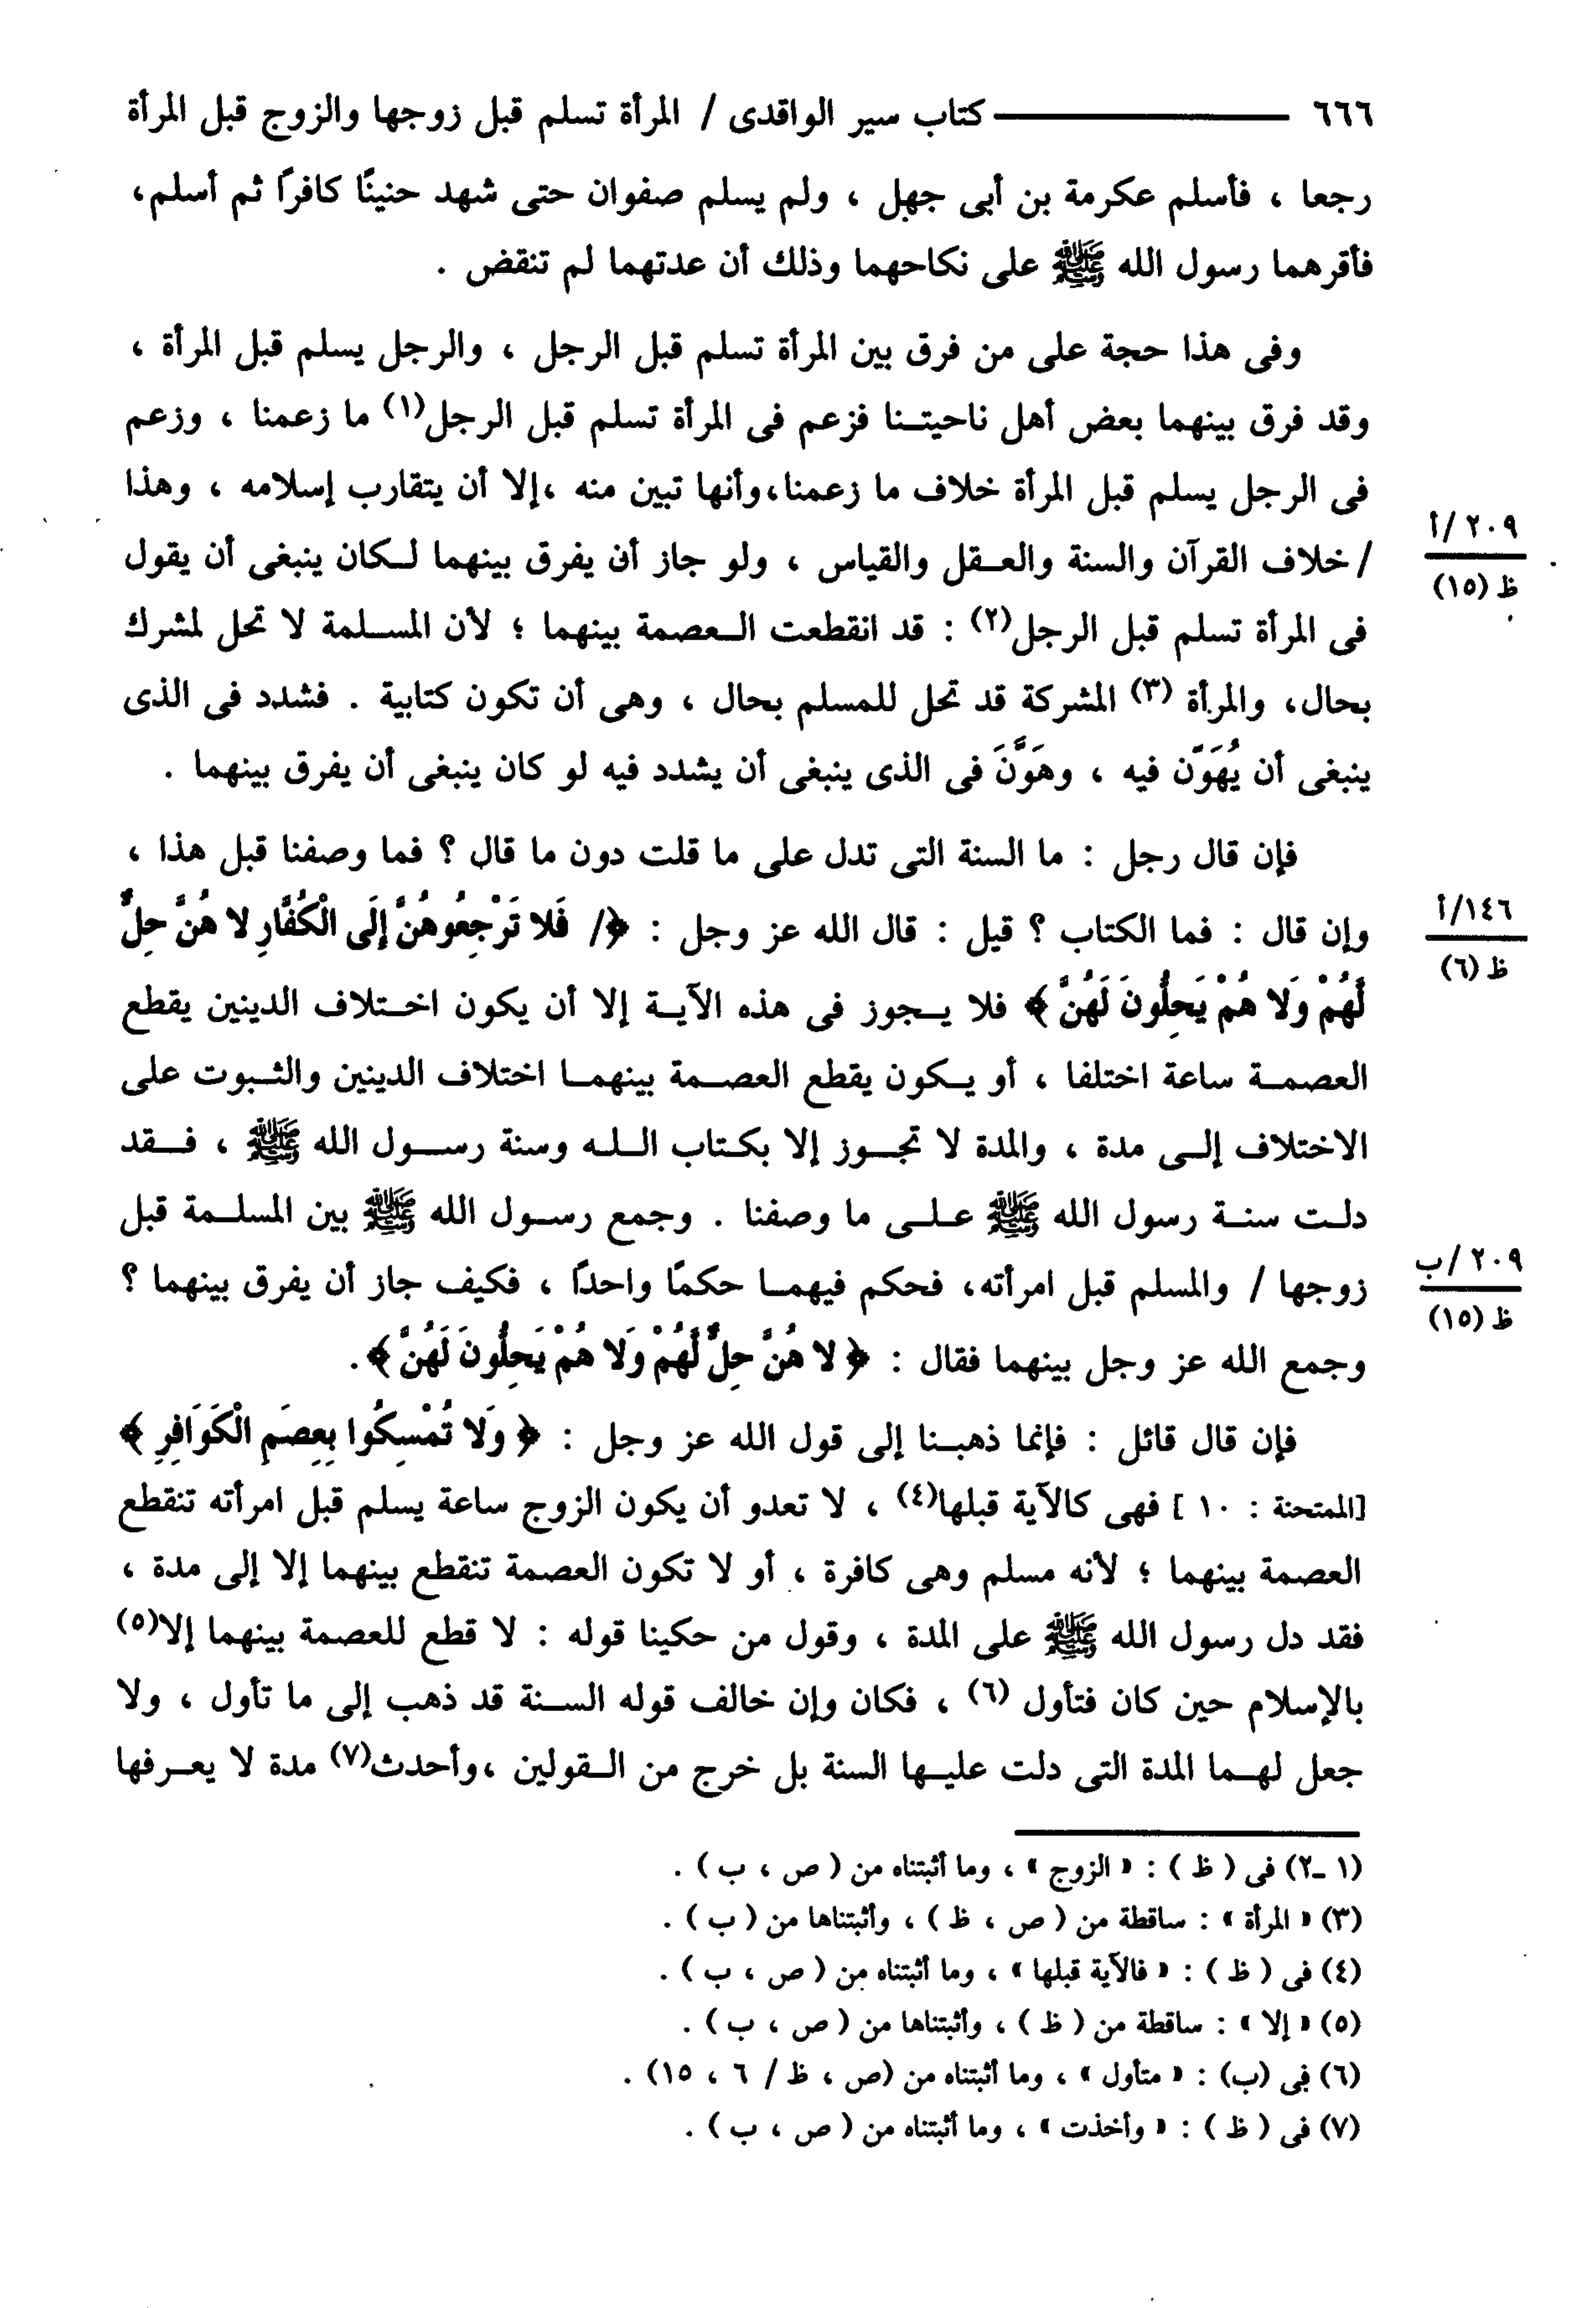 ٦٦٦ ـــــــ كتاب سير الواقدى / المرأة تسلم قبل زوجها والزوج قبل المرأة
رجعا ، فأسلم عكرمة بن أبى جهل ، ولم يسلم صفوان حتى شهد حنينًا كافرًا ثم أسلم،
فأقرهما رسول الله ﷺ على نكاحهما وذلك أن عدتهما لم تنقض .
وفى هذا حجة على من فرق بين المرأة تسلم قبل الرجل ، والرجل يسلم قبل المرأة ،
وقد فرق بينهما بعض أهل ناحيتنا فزعم فى المرأة تسلم قبل الرجل(١) ما زعمنا ، وزعم
فى الرجل يسلم قبل المرأة خلاف ما زعمنا،وأنها تبين منه ،إلا أن يتقارب إسلامه ، وهذا
٢٠٩/أ
/خلاف القرآن والسنة والعقل والقياس ، ولو جاز أن يفرق بينهما لكان ينبغى أن يقول
ظ (١٥)
فى المرأة تسلم قبل الرجل(٢) : قد انقطعت العصمة بينهما ؛ لأن المسلمة لا تحل لمشرك
بحال، والمرأة (٣) المشركة قد تحل للمسلم بحال ، وهى أن تكون كتابية . فشدد فى الذى
ينبغى أن يُهَوَّن فيه ، وهَوَّنَ فى الذى ينبغى أن يشدد فيه لو كان ينبغى أن يفرق بينهما .
فإن قال رجل : ما السنة التى تدل على ما قلت دون ما قال ؟ فما وصفنا قبل هذا ،
١٤٦/أ
وإن قال : فما الكتاب ؟ قيل : قال الله عز وجل : ﴿/ فَلا تَرْجِعُوهُنَّ إِلَى الْكُفَّارِ لا هُنَّ حِلٌّ
ظ (٦)
لَّهُمْ وَلا هُمْ يَحِلُّونَ لَهُنَّ ﴾ فلا يجوز فى هذه الآية إلا أن يكون اختلاف الدينين يقطع
العصمة ساعة اختلفا ، أو يكون يقطع العصمة بينهما اختلاف الدينين والثبوت على
الاختلاف إلى مدة ، والمدة لا تجوز إلا بكتاب الله وسنة رسول الله ﷺ ، فقد
دلت سنة رسول الله ﷺ على ما وصفنا . وجمع رسول الله ﷺ بين المسلمة قبل
٢٠٩/ب
زوجها / والمسلم قبل امرأته، فحكم فيهما حكمًا واحدًا ، فكيف جاز أن يفرق بينهما ؟
ظ (١٥)
وجمع الله عز وجل بينهما فقال : ﴿ لا هُنَّ حِلٌّ لَّهُمْ وَلا هُمْ يَحِلُّونَ لَهُنَّ ﴾.
فإن قال قائل : فإنما ذهبنا إلى قول الله عز وجل : ﴿ وَلا تُمْسِكُوا بِعِصَمِ الْكَوَافِرِ ﴾
[الممتحنة : ١٠ ] فهى كالآية قبلها(٤) ، لا تعدو أن يكون الزوج ساعة يسلم قبل امرأته تنقطع
العصمة بينهما ؛ لأنه مسلم وهى كافرة ، أو لا تكون العصمة تنقطع بينهما إلا إلى مدة ،
فقد دل رسول الله ﷺ على المدة ، وقول من حكينا قوله : لا قطع للعصمة بينهما إلا(٥)
بالإسلام حين كان فتأول (٦) ، فكان وإن خالف قوله السنة قد ذهب إلى ما تأول ، ولا
جعل لهما المدة التى دلت عليها السنة بل خرج من القولين ،وأحدث(٧) مدة لا يعرفها
(١ـ٢) فى ( ظ ) : « الزوج » ، وما أثبتناه من ( ص ، ب ) .
(٣) « المرأة » : ساقطة من ( ص ، ظ ) ، وأثبتناها من ( ب ) .
(٤) فى ( ظ ) : « فالآية قبلها » ، وما أثبتناه من ( ص ، ب ) .
(٥) « إلا » : ساقطة من ( ظ ) ، وأثبتناها من ( ص ، ب ) .
(٦) فى (ب) : « متأول » ، وما أثبتناه من (ص ، ظ / ٦ ، ١٥) .
(٧) فى ( ظ ) : « وأخذت » ، وما أثبتناه من ( ص ، ب ) .